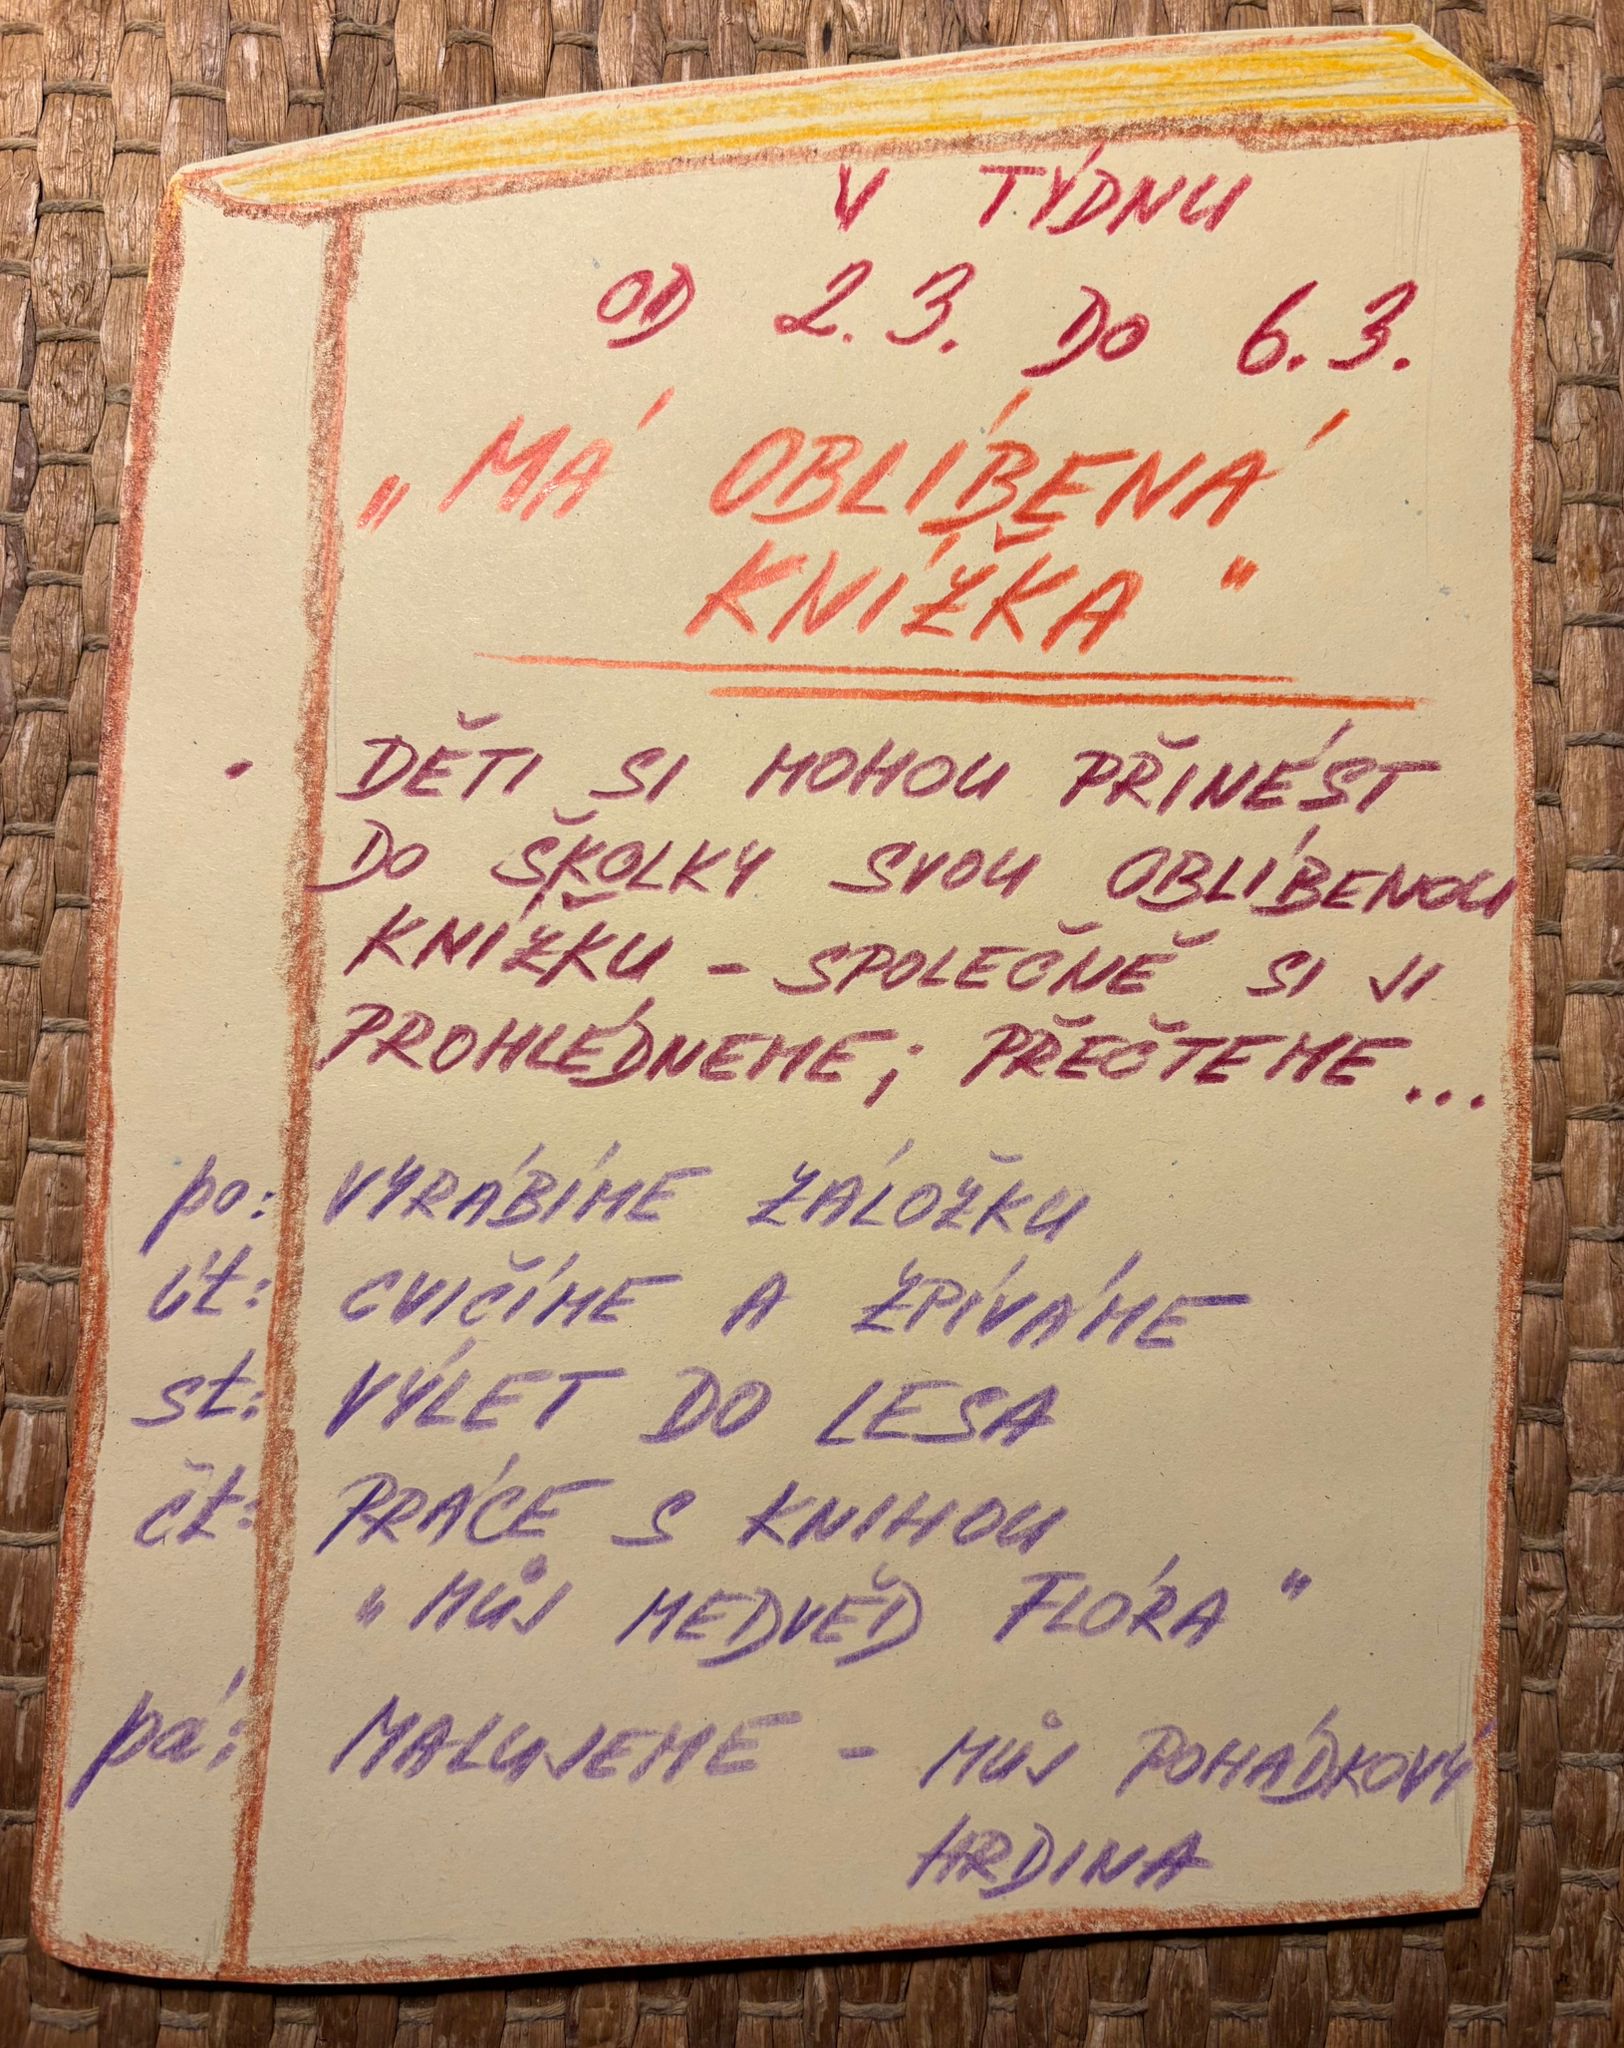 V TÝDNU
OD 2.3. DO 6.3.
„MÁ OBLÍBENÁ
KNÍŽKA"
• DĚTI SI MOHOU PŘINÉST
DO ŠKOLKY SVOU OBLÍBENOU
KNÍŽKU - SPOLEČNĚ SI JI
PROHLÉDNEME; PŘEČTEME...
po: VYRÁBÍME ZÁLOŽKU
út: CVIČÍME A ZPÍVÁME
st: VÝLET DO LESA
čt: PRÁCE S KNIHOU
„MŮJ MEDVĚD FLÓRA"
pá: MALUJEME - MŮJ POHÁDKOVÝ
HRDINA